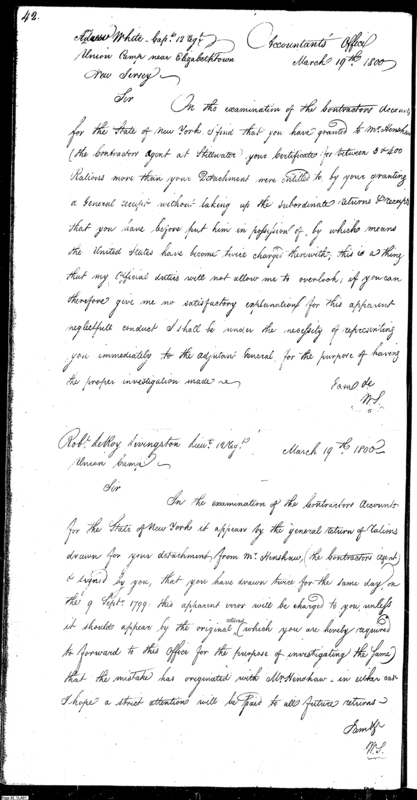 42.
Andrew White Capt. 12 Regt.
Accountants' Office
Union Camp near Elizabethtown
March 19th 1800
New Jersey
Sir
On the examination of the Contractors Accounts
for the State of New York, I find that you have granted to Mr. Henshaw
(the Contractors Agent at Stillwater) your Certificate for between 3 & 400
Rations more than your Detachment were entitled to, by your granting
a General receipt without taking up the subordinate returns & receipts
that you have before put him in possession of, by which means
the United States have become twice charged therewith; this is a thing
that my Official duties will not allow me to overlook; if you can
therefore give me no satisfactory explanation for this apparent
neglectfull conduct I shall be under the necessity of representing
you immediately to the adjutant General, for the purpose of having
the proper investigation made
I am &c
W.S.
Robt. LeRoy Livingston Lieut. 12 Regt.
March 19th 1800
Union Camp
Sir
In the examination of the Contractors Accounts
for the State of New York it appears by the general return of Rations
drawn for your detachment, from Mr. Henshaw, (the Contractors Agent)
& signed by you, that you have drawn twice for the same day, on
the 9 Sept. 1799. this apparent error will be charged to you, unless
it should appear by the original returns (which you are hereby required
to forward to this Office for the purpose of investigating the same)
that the mistake has originated with Mr. Henshaw - in either case
I hope a strict attention will be paid to all future returns
I am &c
W.S.